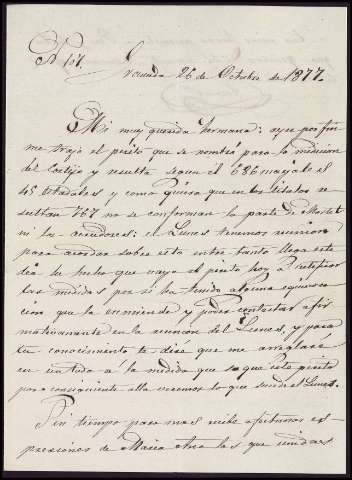 N 107.
Granada 26 de Octubre de 1877.
Mi muy querida hermana: ayer por fin
me trajo el perito que se nombró para la medicion
del Cortijo y resulta segun él 686
45 estadales y como quiera que en los titulos re-
sultan 767 no se conforman la parte de
ni los acredores: el Lunes tenemos reunion
para acordar sobre esto entre tanto llega este
dia he hecho que vaya el perito hoy á retificar
las medidas por si ha tenido alguna equivo-
cacion que la enmiende y poder contestar afir
mativamente en la reunion del Lunes, y para
tu conocimiento te diré que me arreglaré
en un todo á la medida que saque este perito
por consiguiente alla veremos lo que sucede el Lunes.
Sin tiempo para mas mil afectuosas es-
presiones de Maria Ana las que unidas